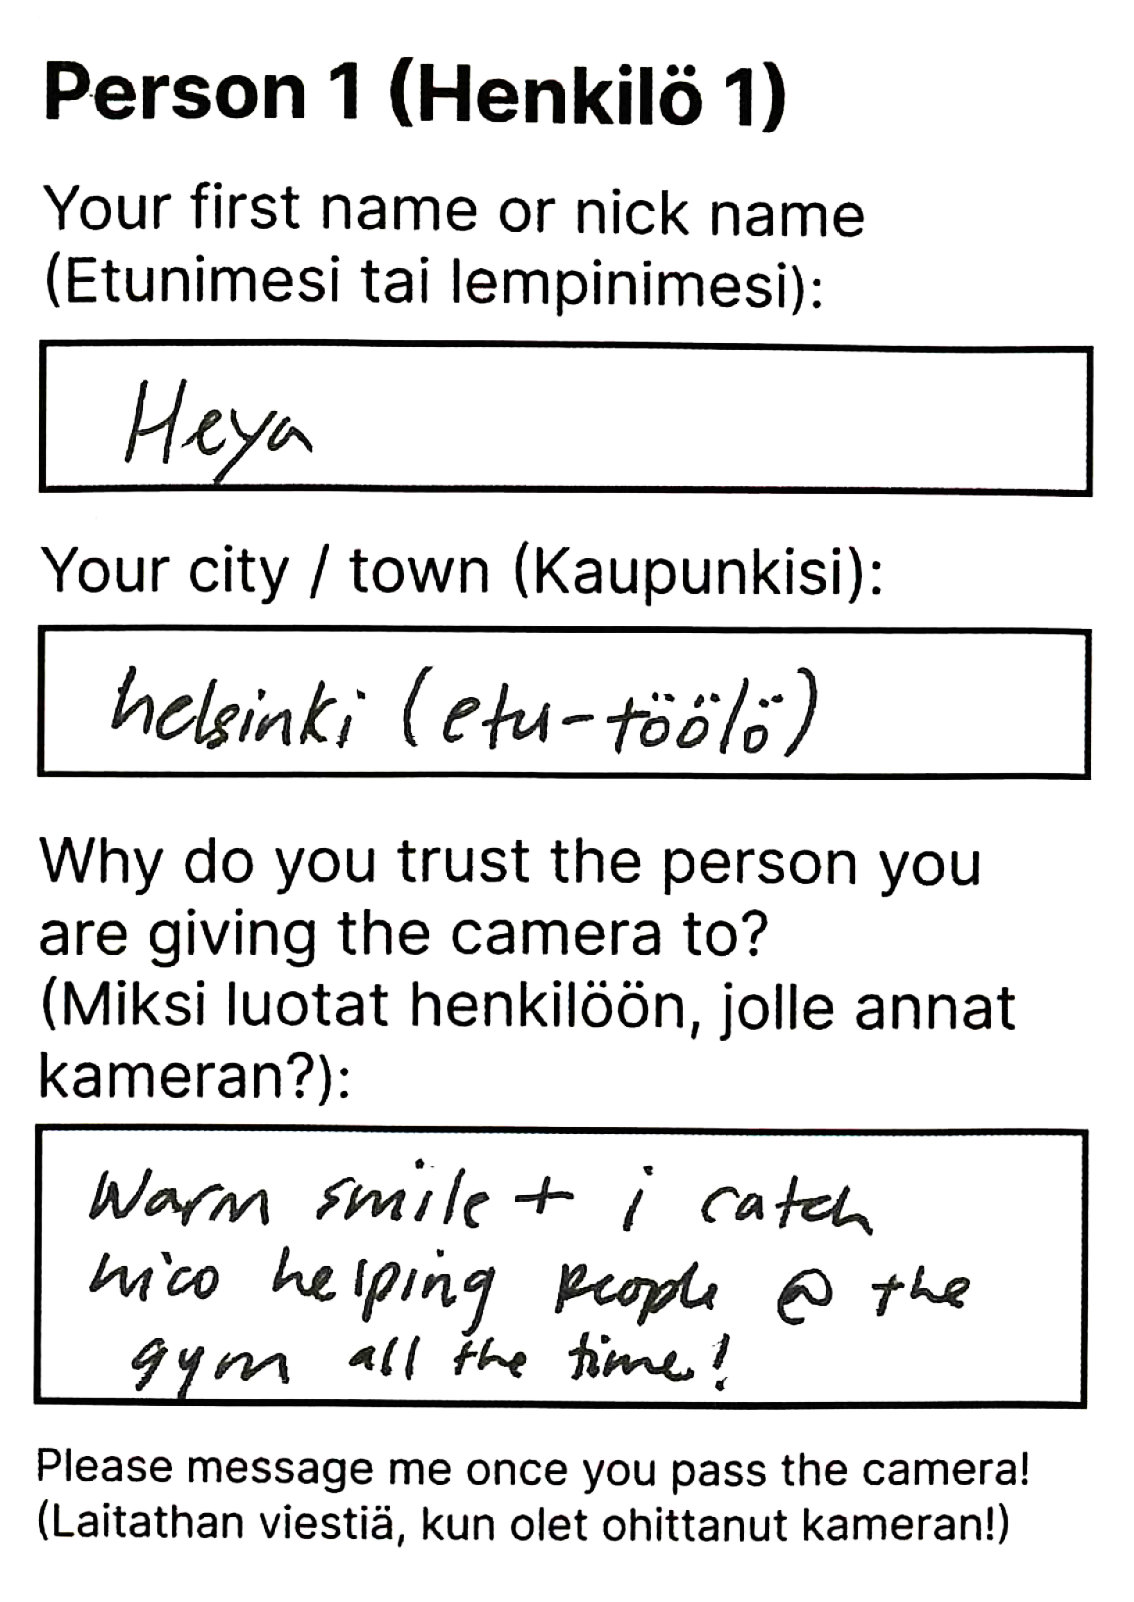 Person 1 (Henkilö 1)
Your first name or nick name
(Etunimesi tai lempinimesi):
Heya
Your city / town (Kaupunkisi):
helsinki (etu-töölö)
Why do you trust the person you
are giving the camera to?
(Miksi luotat henkilöön, jolle annat
kameran?):
Warm smile + i catch
nico helping people @ the
gym all the time!
Please message me once you pass the camera!
(Laitathan viestiä, kun olet ohittanut kameran!)